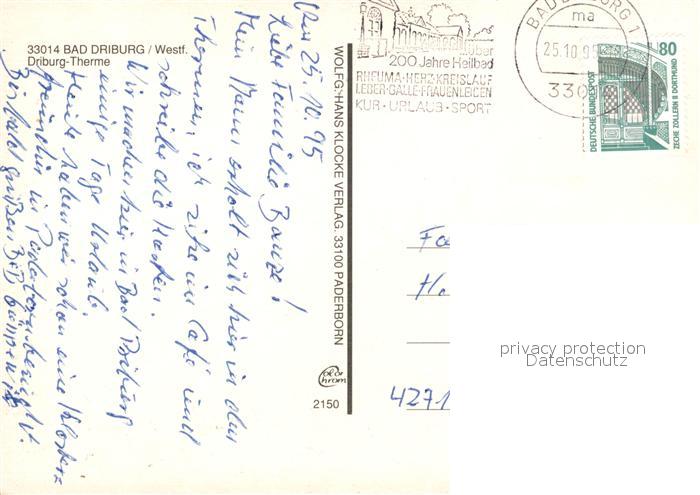 33014 BAD DRIBURG / Westf.
Driburg-Therme
Den 25.10.95
Liebe Familie
Mein Mann erholt sich hier in den
Thermen, ich sitze im Café und
schreibe die Karten.
Wir machen hier in Bad Driburg
einige Tage Urlaub.
Heute haben wir schon eine
in Paderborn
Bis bald grüßen
WOLFG.-HANS KLOCKE VERLAG, 33100 PADERBORN
color
chrom
2150
über
200 Jahre Heilbad
RHEUMA·HERZ·KREISLAUF
LEBER·GALLE·FRAUENLEIDEN
KUR·URLAUB·SPORT
BAD DRIBURG 1
ma
25.10.95
330
80
DEUTSCHE BUNDESPOST
ZECHE ZOLLERN II DORTMUND
Fa
4271
privacy protection
Datenschutz